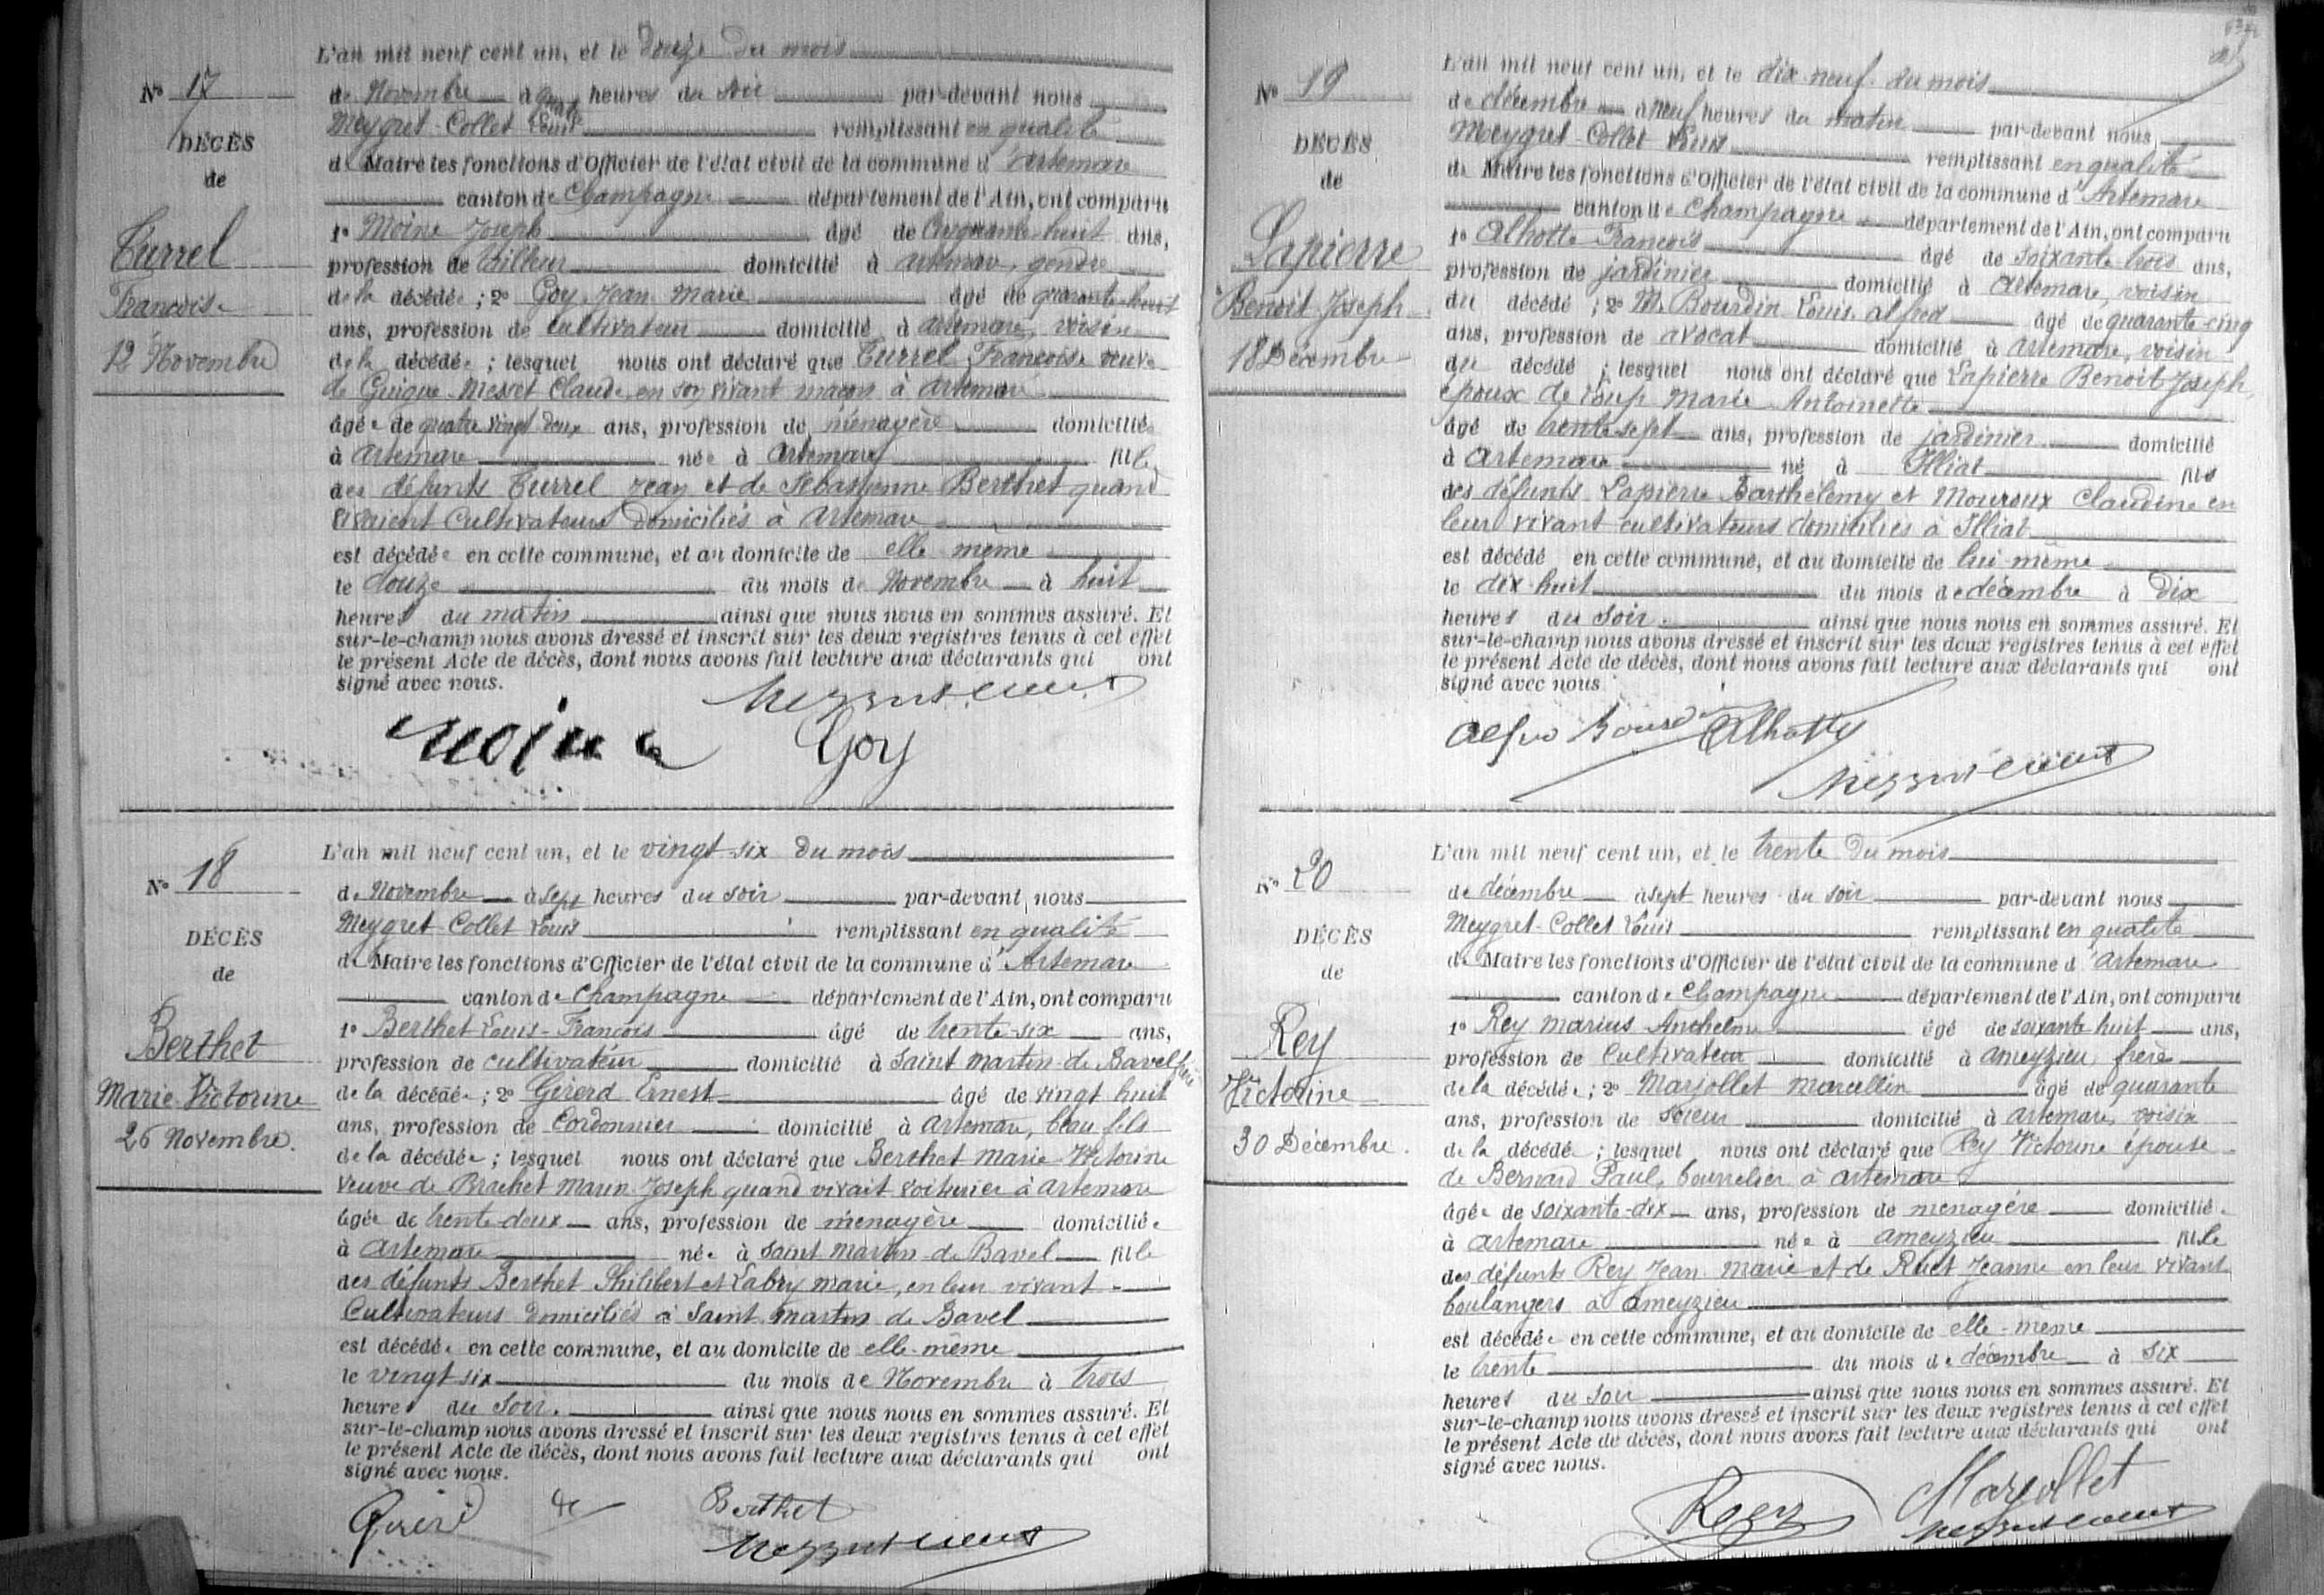 N° 17
DÉCÈS
de
Turrel
Francoise
12 Novembre
L'an mil neuf cent un, et le douze du mois
de Novembre à heures du soir par-devant nous
Meygret-Collet Louis remplissant en qualité
de Maire les fonctions d'Officier de l'état civil de la commune d'Artemare
canton de Champagne département de l'Ain, ont comparu
1° Moine Joseph âgé de Cinquante-huit ans,
profession de tailleur domicilié à artemare, gendre
de la décédée ; 2° Goy Jean Marie âgé de quarante-huit
ans, profession de cultivateur domicilié à artemare, voisin
de la décédée ; lesquel nous ont déclaré que Turrel Francoise veuve
de Guigue-Messet Claude, en son vivant maçon à Artemare
âgée de quatre vingt deux ans, profession de ménagère domiciliée
à Artemare née à Artemare fille
des défunts Turrel Jean et de Sébastienne Berthet quand
vivaient Cultivateurs domiciliés à Artemare
est décédée en cette commune, et au domicile de elle même
le douze du mois de Novembre à huit
heures du matin ainsi que nous nous en sommes assuré. Et
sur-le-champ nous avons dressé et inscrit sur les deux registres tenus à cet effet
le présent Acte de décès, dont nous avons fait lecture aux déclarants qui ont
signé avec nous.
Moine Goy
N° 18
DÉCÈS
de
Berthet
Marie Victorine
26 Novembre.
L'an mil neuf cent un, et le vingt-six du mois
de Novembre à sept heures du soir par-devant nous
Meygret-Collet Louis remplissant en qualité
de Maire les fonctions d'Officier de l'état civil de la commune d'Artemare
canton de Champagne département de l'Ain, ont comparu
1° Berthet Louis-François âgé de trente-six ans,
profession de cultivateur domicilié à Saint Martin-de Bavel frère
de la décédée ; 2° Gererd Ernest âgé de vingt huit
ans, profession de Cordonnier domicilié à Artemare, beau fils
de la décédée ; lesquel nous ont déclaré que Berthet Marie-Victorine
veuve de Brachet Marin Joseph quand vivait voiturier à Artemare
âgée de trente-deux ans, profession de ménagère domiciliée
à Artemare née à Saint Martin-de Bavel fille
des défunts Berthet Philibert et Labry Marie, en leur vivant
Cultivateurs domiciliés à Saint Martin de Bavel
est décédée en cette commune, et au domicile de elle-même
le vingt six du mois de Novembre à trois
heures du soir. ainsi que nous nous en sommes assuré. Et
sur-le-champ nous avons dressé et inscrit sur les deux registres tenus à cet effet
le présent Acte de décès, dont nous avons fait lecture aux déclarants qui ont
signé avec nous.
Berthet
N° 19
DÉCÈS
de
Lapierre
Benoit Joseph
18 Décembre
L'an mil neuf cent un, et le dix-neuf du mois
de décembre à neuf heures du matin par-devant nous
Meygret-Collet Louis remplissant en qualité
de Maire les fonctions d'Officier de l'état civil de la commune d'Artemare
canton de Champagne département de l'Ain, ont comparu
1° Alhotte François âgé de soixante trois ans,
profession de jardinier domicilié à Artemare, voisin
du décédé ; 2° M. Bourdin Louis alfred âgé de quarante-cinq
ans, profession de avocat domicilié à Artemare, voisin
du décédé ; lesquel nous ont déclaré que Lapierre Benoit Joseph,
époux de Loup Marie Antoinette
âgé de trente sept ans, profession de jardinier domicilié
à Artemare né à Illiat fils
des défunts Lapierre Barthélemy et Mouroux Claudine en
leur vivant cultivateurs domiciliés à Illiat
est décédé en cette commune, et au domicile de lui-même
le dix-huit du mois de décembre à Dix
heures du soir. ainsi que nous nous en sommes assuré. Et
sur-le-champ nous avons dressé et inscrit sur les deux registres tenus à cet effet
le présent Acte de décès, dont nous avons fait lecture aux déclarants qui ont
signé avec nous
Alfred Bourdin Alhotte
N° 20
DÉCÈS
de
Rey
Victorine
30 Décembre.
L'an mil neuf cent un, et le trente du mois
de décembre à sept heures du soir par-devant nous
Meygret-Collet Louis remplissant en qualité
de Maire les fonctions d'Officier de l'état civil de la commune d'Artemare
canton de Champagne département de l'Ain, ont comparu
1° Rey Marius Anthelme âgé de soixante huit ans,
profession de Cultivateur domicilié à Ameyzieu, frère
de la décédée ; 2° Marjollet Marcellin âgé de quarante
ans, profession de scieur domicilié à Artemare, voisin
de la décédée ; lesquel nous ont déclaré que Rey Victorine épouse
de Bernard Paul, bourrelier à artemare
âgée de soixante-dix ans, profession de ménagère domiciliée
à Artemare née à Ameyzieu fille
des défunts Rey Jean Marie et de Ruet Jeanne en leur vivant
boulangers à Ameyzieu
est décédée en cette commune, et au domicile de elle-même
le trente du mois de décembre à six
heures du soir ainsi que nous nous en sommes assuré. Et
sur-le-champ nous avons dressé et inscrit sur les deux registres tenus à cet effet
le présent Acte de décès, dont nous avons fait lecture aux déclarants qui ont
signé avec nous.
Rey Marjollet